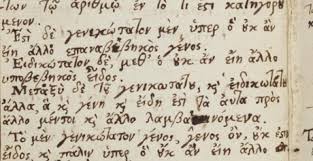 των τῷ ἀριθμῷ ἐν τῷ τί ἐστι κατηγορού
μενον.
Ἔστι δὲ γενικώτατον μὲν, ὑπὲρ ὃ οὐκ ἂν
εἴη ἄλλο ἐπαναβεβηκὸς γένος.
Εἰδικώτατον δὲ, μεθ' ὃ οὐκ ἂν εἴη ἄλλο
ὑποβεβηκὸς εἶδος.
Μεταξὺ δὲ τοῦ γενικωτάτου, κ̀ εἰδικωτάτου
ἄλλα, ἃ κ̀ γένη κ̀ εἴδη ἐστὶ τὰ αὐτὰ πρὸς
ἄλλο μέντοι κ̀ ἄλλο λαμβανόμενα.
Τὸ μὲν γενικώτατον γένος, γένος ὂν, οὐκ ἔστι
εἶδος κ̀ πάλιν ὑπὲρ ὃ οὐκ ἂν εἴη ἄλλο